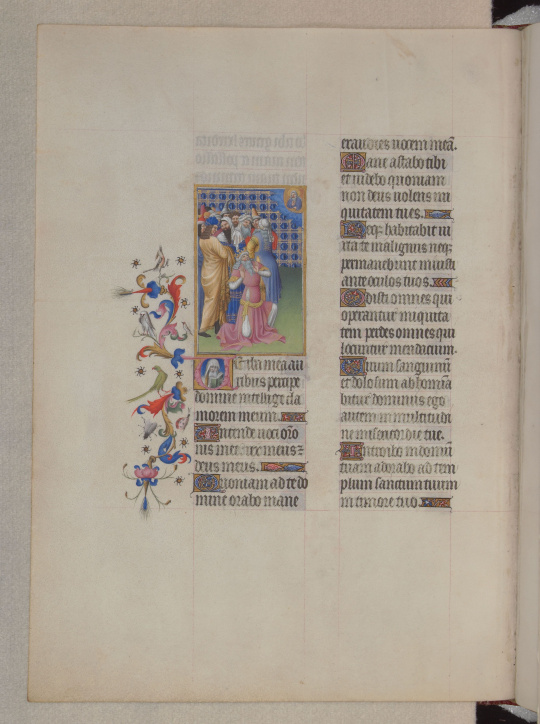 Verba mea au
ribus percipe
domine intellige cla
morem meum.
Intende uoci oro
nis mee rex meus z
deus meus.
Quoniam ad te do
mine orabo mane
exaudies uocem meā.
Mane astabo tibi
et uidebo quoniam
non deus uolens ini
quitatem tu es.
Neqȝ habitabit iu
xta te malignus neqȝ
permanebunt iniusti
ante oculos tuos.
Odisti omnes qui
operantur iniquita
tem perdes omnes qui
locuntur mendacium.
Virum sanguinū
et dolosum abhomīa
bitur dominus ego
autem in multitudi
ne misericordie tue.
Introibo in domū
tuam adorabo ad tem
plum sanctum tuum
in timore tuo.